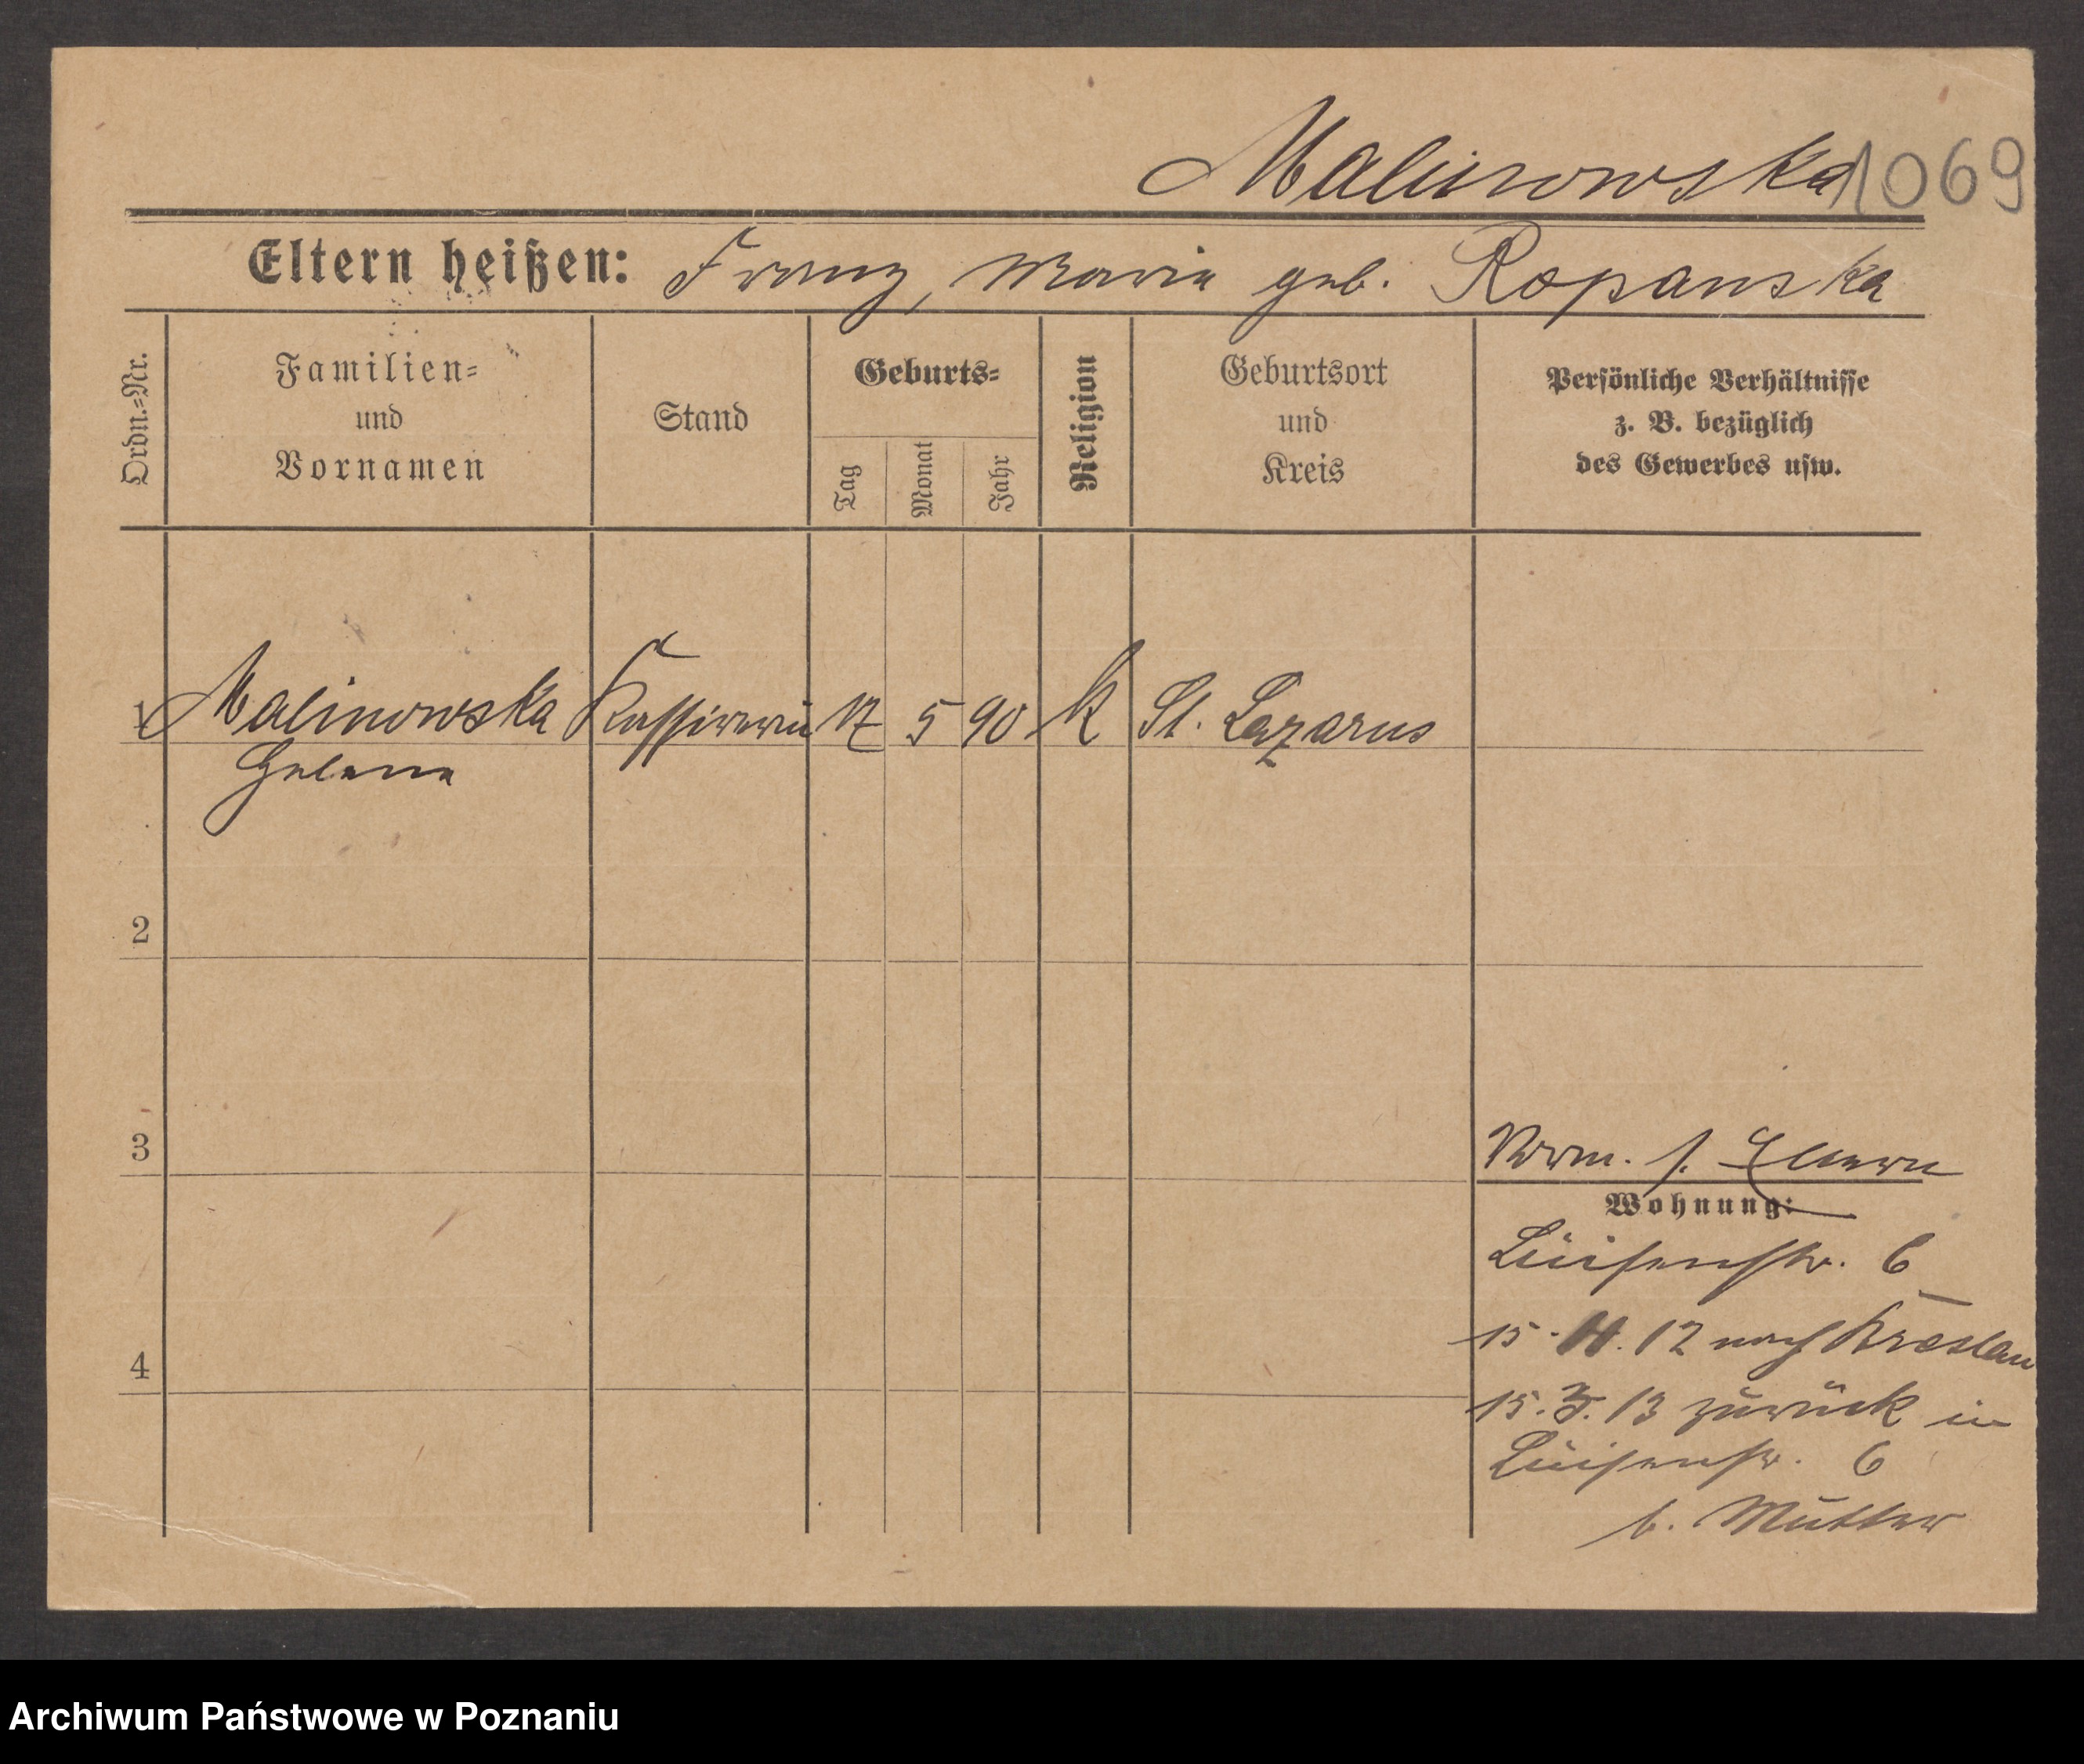 Malinowska 1069
Eltern heißen: Franz, Maria geb. Ropanska
Ordn.=Nr.
Familien=
und
Vornamen
Stand
Geburts=
Tag
Monat
Jahr
Religion
Geburtsort
und
Kreis
Persönliche Verhältnisse
z. B. bezüglich
des Gewerbes usw.
1 Malinowska Kassirerin 17 5 90 K St. Lazarus
Helene
2
3
4
Vorm. s. Eltern
Wohnung:
Luisenstr. 6
15. 12 nach Breslau
15. 3. 13 zurück in
Luisenstr. 6
b. Mutter
Archiwum Państwowe w Poznaniu